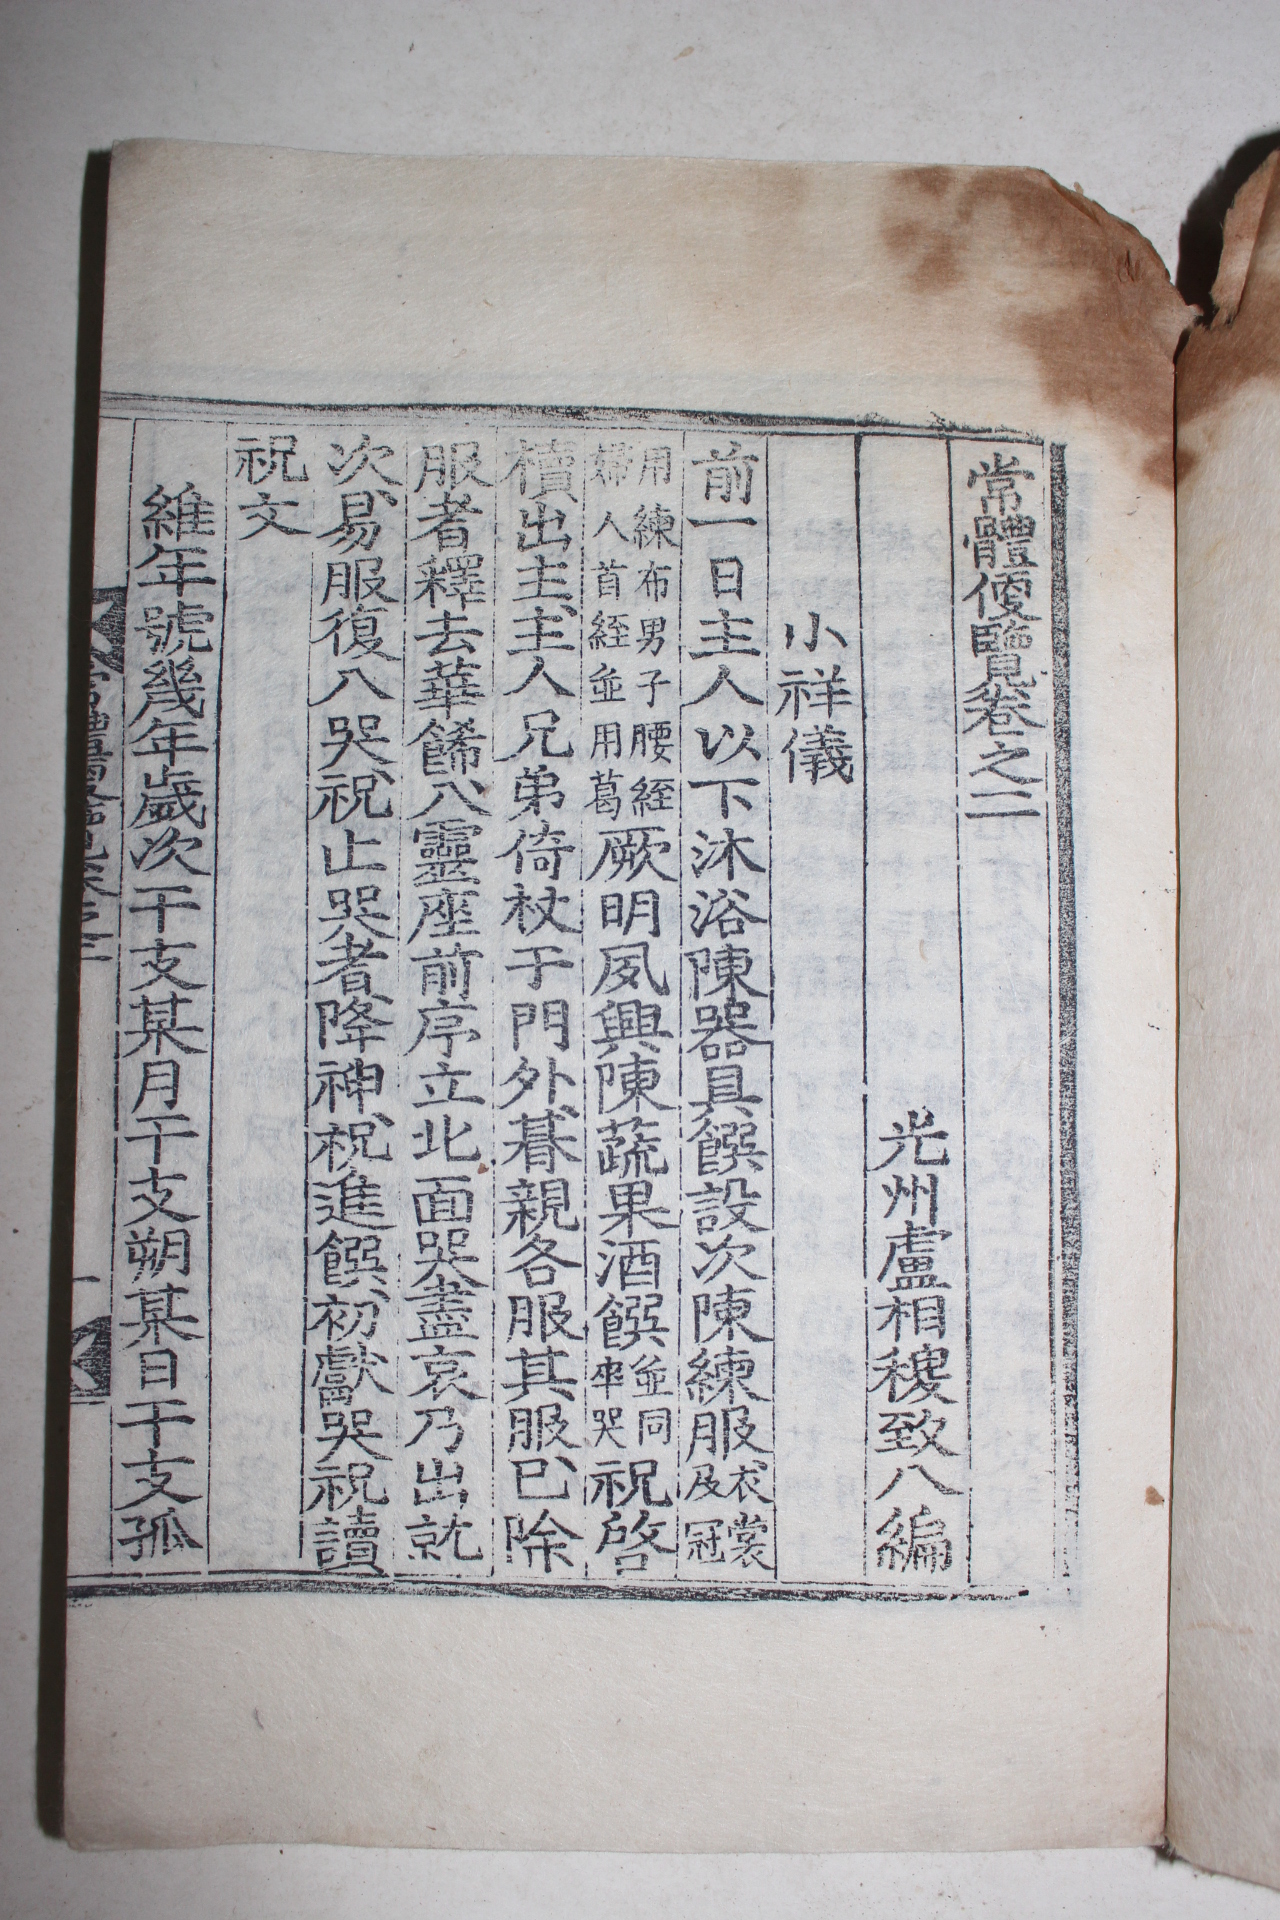 常體便覽卷之二
光州盧相稷致八編
小祥儀
前一日主人以下沐浴陳器具饌設次陳練服衣裳及冠
用練布男子腰絰婦人首絰並用葛厥明夙興陳蔬果酒饌並同卒哭祝啓
櫝出主、主人兄弟倚杖于門外、朞親各服其服、已除
服者釋去華餙、入靈座前序立北面哭盡哀乃出就
次、易服復入哭、祝止哭者、降神、祝進饌、初獻哭祝讀
祝文
維年號幾年歲次干支某月干支朔某日干支孤